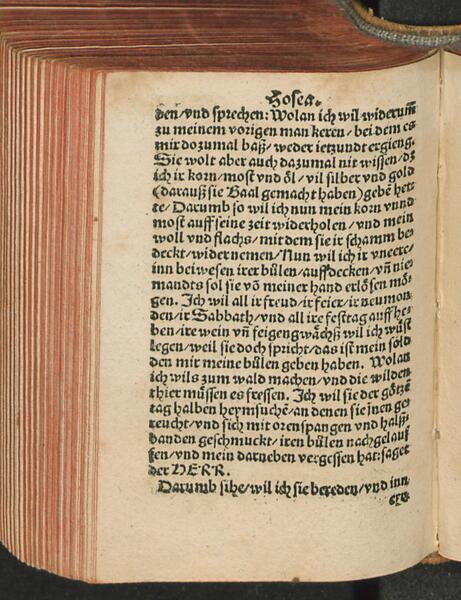 Hosea.
den/vnd sprechen: Wolan ich wil widerum̃
zu meinem vorigen man keren/bei dem es
mir dozumal baß/weder ietzundt ergieng.
Sie wolt aber auch dazumal nit wissen/dz
ich ir korn/most vnd öl/vil silber vnd gold
(darauß sie Baal gemacht haben) gebẽ het-
te/Darumb so wil ich nun mein korn vnnd
most auff seine zeit widerholen/vnd mein
woll vnd flachs/mit dem sie ir schamm be-
deckt/wider nemen/Nun wil ich ir vneere/
inn beiwesen irer bůlen/auffdecken/vñ nie-
mandts sol sie võ meiner hand erlösen mö-
gen. Ich wil all ir freud/ir feier/ir neumon-
den/ir Sabbath/vnd all ire festtag auffhe-
ben/ire wein vñ feigengwächß wil ich wüst
legen/weil sie doch spricht/das ist mein sold
den mir meine bůlen geben haben. Wolan
ich wils zum wald machen/vnd die wilden
thier müssen es fressen. Ich wil sie der götzẽ
tag halben heymsuchẽ/an denen sie jnen ge-
reucht/vnd sich mit orenspangen vnd halß-
banden geschmuckt/iren bůlen nachgelauf-
fen/vnd mein darneben vergessen hat: saget
der HERR.
Darumb sihe/wil ich sie bereden/vnd inn